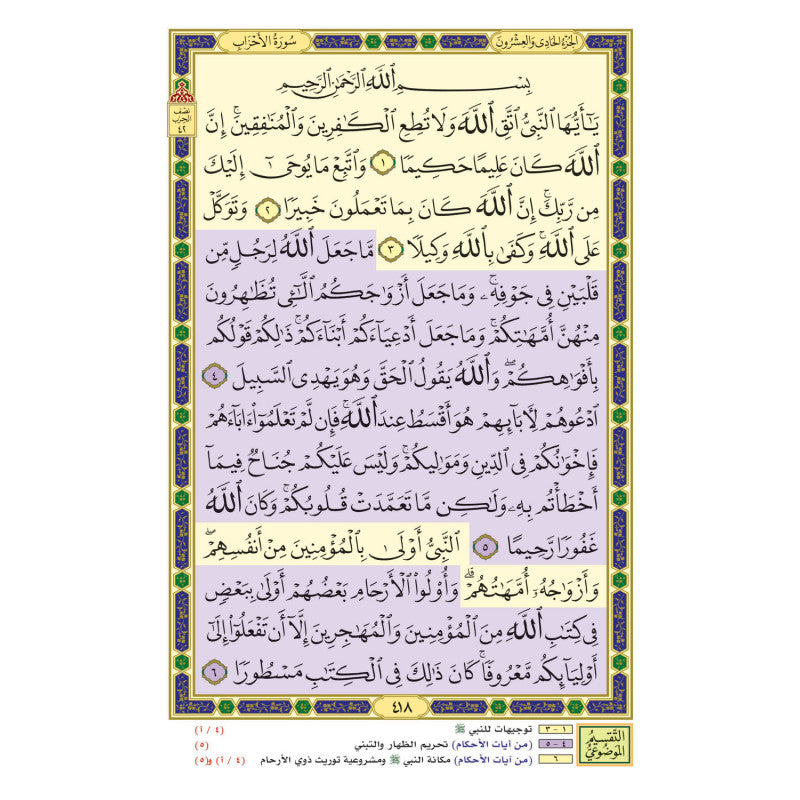 الجزء الحادى والعشرون
سورة الأحزاب
نصف
الحزب
٤٢
بِسْمِ ٱللَّهِ ٱلرَّحْمَٰنِ ٱلرَّحِيمِ
يَٰٓأَيُّهَا ٱلنَّبِىُّ ٱتَّقِ ٱللَّهَ وَلَا تُطِعِ ٱلْكَٰفِرِينَ وَٱلْمُنَٰفِقِينَ ۗ إِنَّ
ٱللَّهَ كَانَ عَلِيمًا حَكِيمًا ١ وَٱتَّبِعْ مَا يُوحَىٰٓ إِلَيْكَ
مِن رَّبِّكَ ۚ إِنَّ ٱللَّهَ كَانَ بِمَا تَعْمَلُونَ خَبِيرًا ٢ وَتَوَكَّلْ
عَلَى ٱللَّهِ ۚ وَكَفَىٰ بِٱللَّهِ وَكِيلًا ٣ مَّا جَعَلَ ٱللَّهُ لِرَجُلٍ مِّن
قَلْبَيْنِ فِى جَوْفِهِۦ ۚ وَمَا جَعَلَ أَزْوَٰجَكُمُ ٱلَّٰٓـِٔى تُظَٰهِرُونَ
مِنْهُنَّ أُمَّهَٰتِكُمْ ۚ وَمَا جَعَلَ أَدْعِيَآءَكُمْ أَبْنَآءَكُمْ ۚ ذَٰلِكُمْ قَوْلُكُم
بِأَفْوَٰهِكُمْ ۖ وَٱللَّهُ يَقُولُ ٱلْحَقَّ وَهُوَ يَهْدِى ٱلسَّبِيلَ ٤
ٱدْعُوهُمْ لِءَابَآئِهِمْ هُوَ أَقْسَطُ عِندَ ٱللَّهِ ۚ فَإِن لَّمْ تَعْلَمُوٓا۟ ءَابَآءَهُمْ
فَإِخْوَٰنُكُمْ فِى ٱلدِّينِ وَمَوَٰلِيكُمْ ۚ وَلَيْسَ عَلَيْكُمْ جُنَاحٌ فِيمَآ
أَخْطَأْتُم بِهِۦ وَلَٰكِن مَّا تَعَمَّدَتْ قُلُوبُكُمْ ۚ وَكَانَ ٱللَّهُ
غَفُورًا رَّحِيمًا ٥ ٱلنَّبِىُّ أَوْلَىٰ بِٱلْمُؤْمِنِينَ مِنْ أَنفُسِهِمْ ۖ
وَأَزْوَٰجُهُۥٓ أُمَّهَٰتُهُمْ ۗ وَأُو۟لُوا۟ ٱلْأَرْحَامِ بَعْضُهُمْ أَوْلَىٰ بِبَعْضٍ
فِى كِتَٰبِ ٱللَّهِ مِنَ ٱلْمُؤْمِنِينَ وَٱلْمُهَٰجِرِينَ إِلَّآ أَن تَفْعَلُوٓا۟ إِلَىٰٓ
أَوْلِيَآئِكُم مَّعْرُوفًا ۚ كَانَ ذَٰلِكَ فِى ٱلْكِتَٰبِ مَسْطُورًا ٦
٤١٨
التقسيم
الموضوعي
١ - ٣ توجيهات للنبي ﷺ (٤ / أ)
٤ - ٥ (من آيات الأحكام) تحريم الظهار والتبني (٥)
٦ (من آيات الأحكام) مكانة النبي ﷺ ومشروعية توريث ذوي الأرحام (٤ / أ) و(٥)